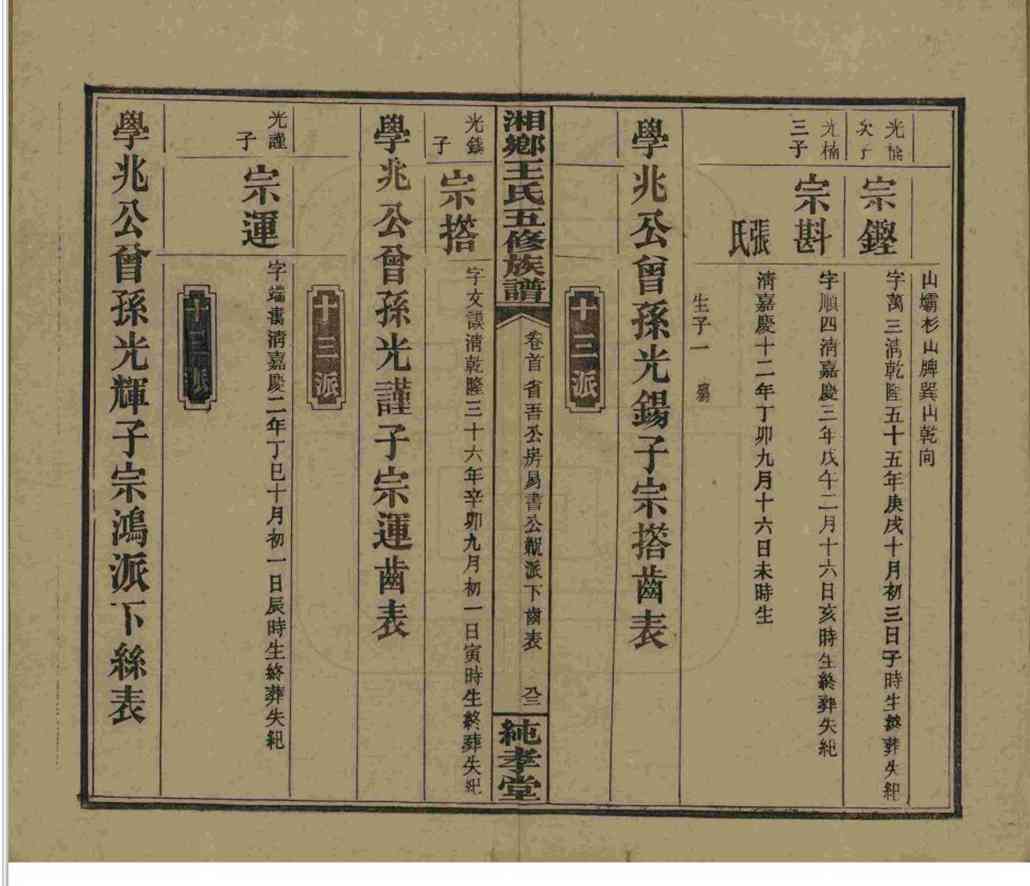 山壩杉山牌巽山乾向
光楠
次子
宗鏗
字萬三清乾隆五十五年庚戌十月初三日子時生終葬失紀
光楠
三子
宗斟
字順四清嘉慶三年戊午二月十六日亥時生終葬失紀
張氏
清嘉慶十二年丁卯九月十六日未時生
生子一
學兆公曾孫光錫子宗撘齒表
十三派
湘鄉王氏五修族譜
卷首 省吾公房易書公親派下齒表
純孝堂
光錫
子
宗撘
字文談清乾隆三十六年辛卯九月初一日寅時生終葬失紀
學兆公曾孫光謹子宗運齒表
十三派
光謹
子
宗運
字端書清嘉慶二年丁巳十月初一日辰時生終葬失紀
十三派
學兆公曾孫光輝子宗鴻派下絲表